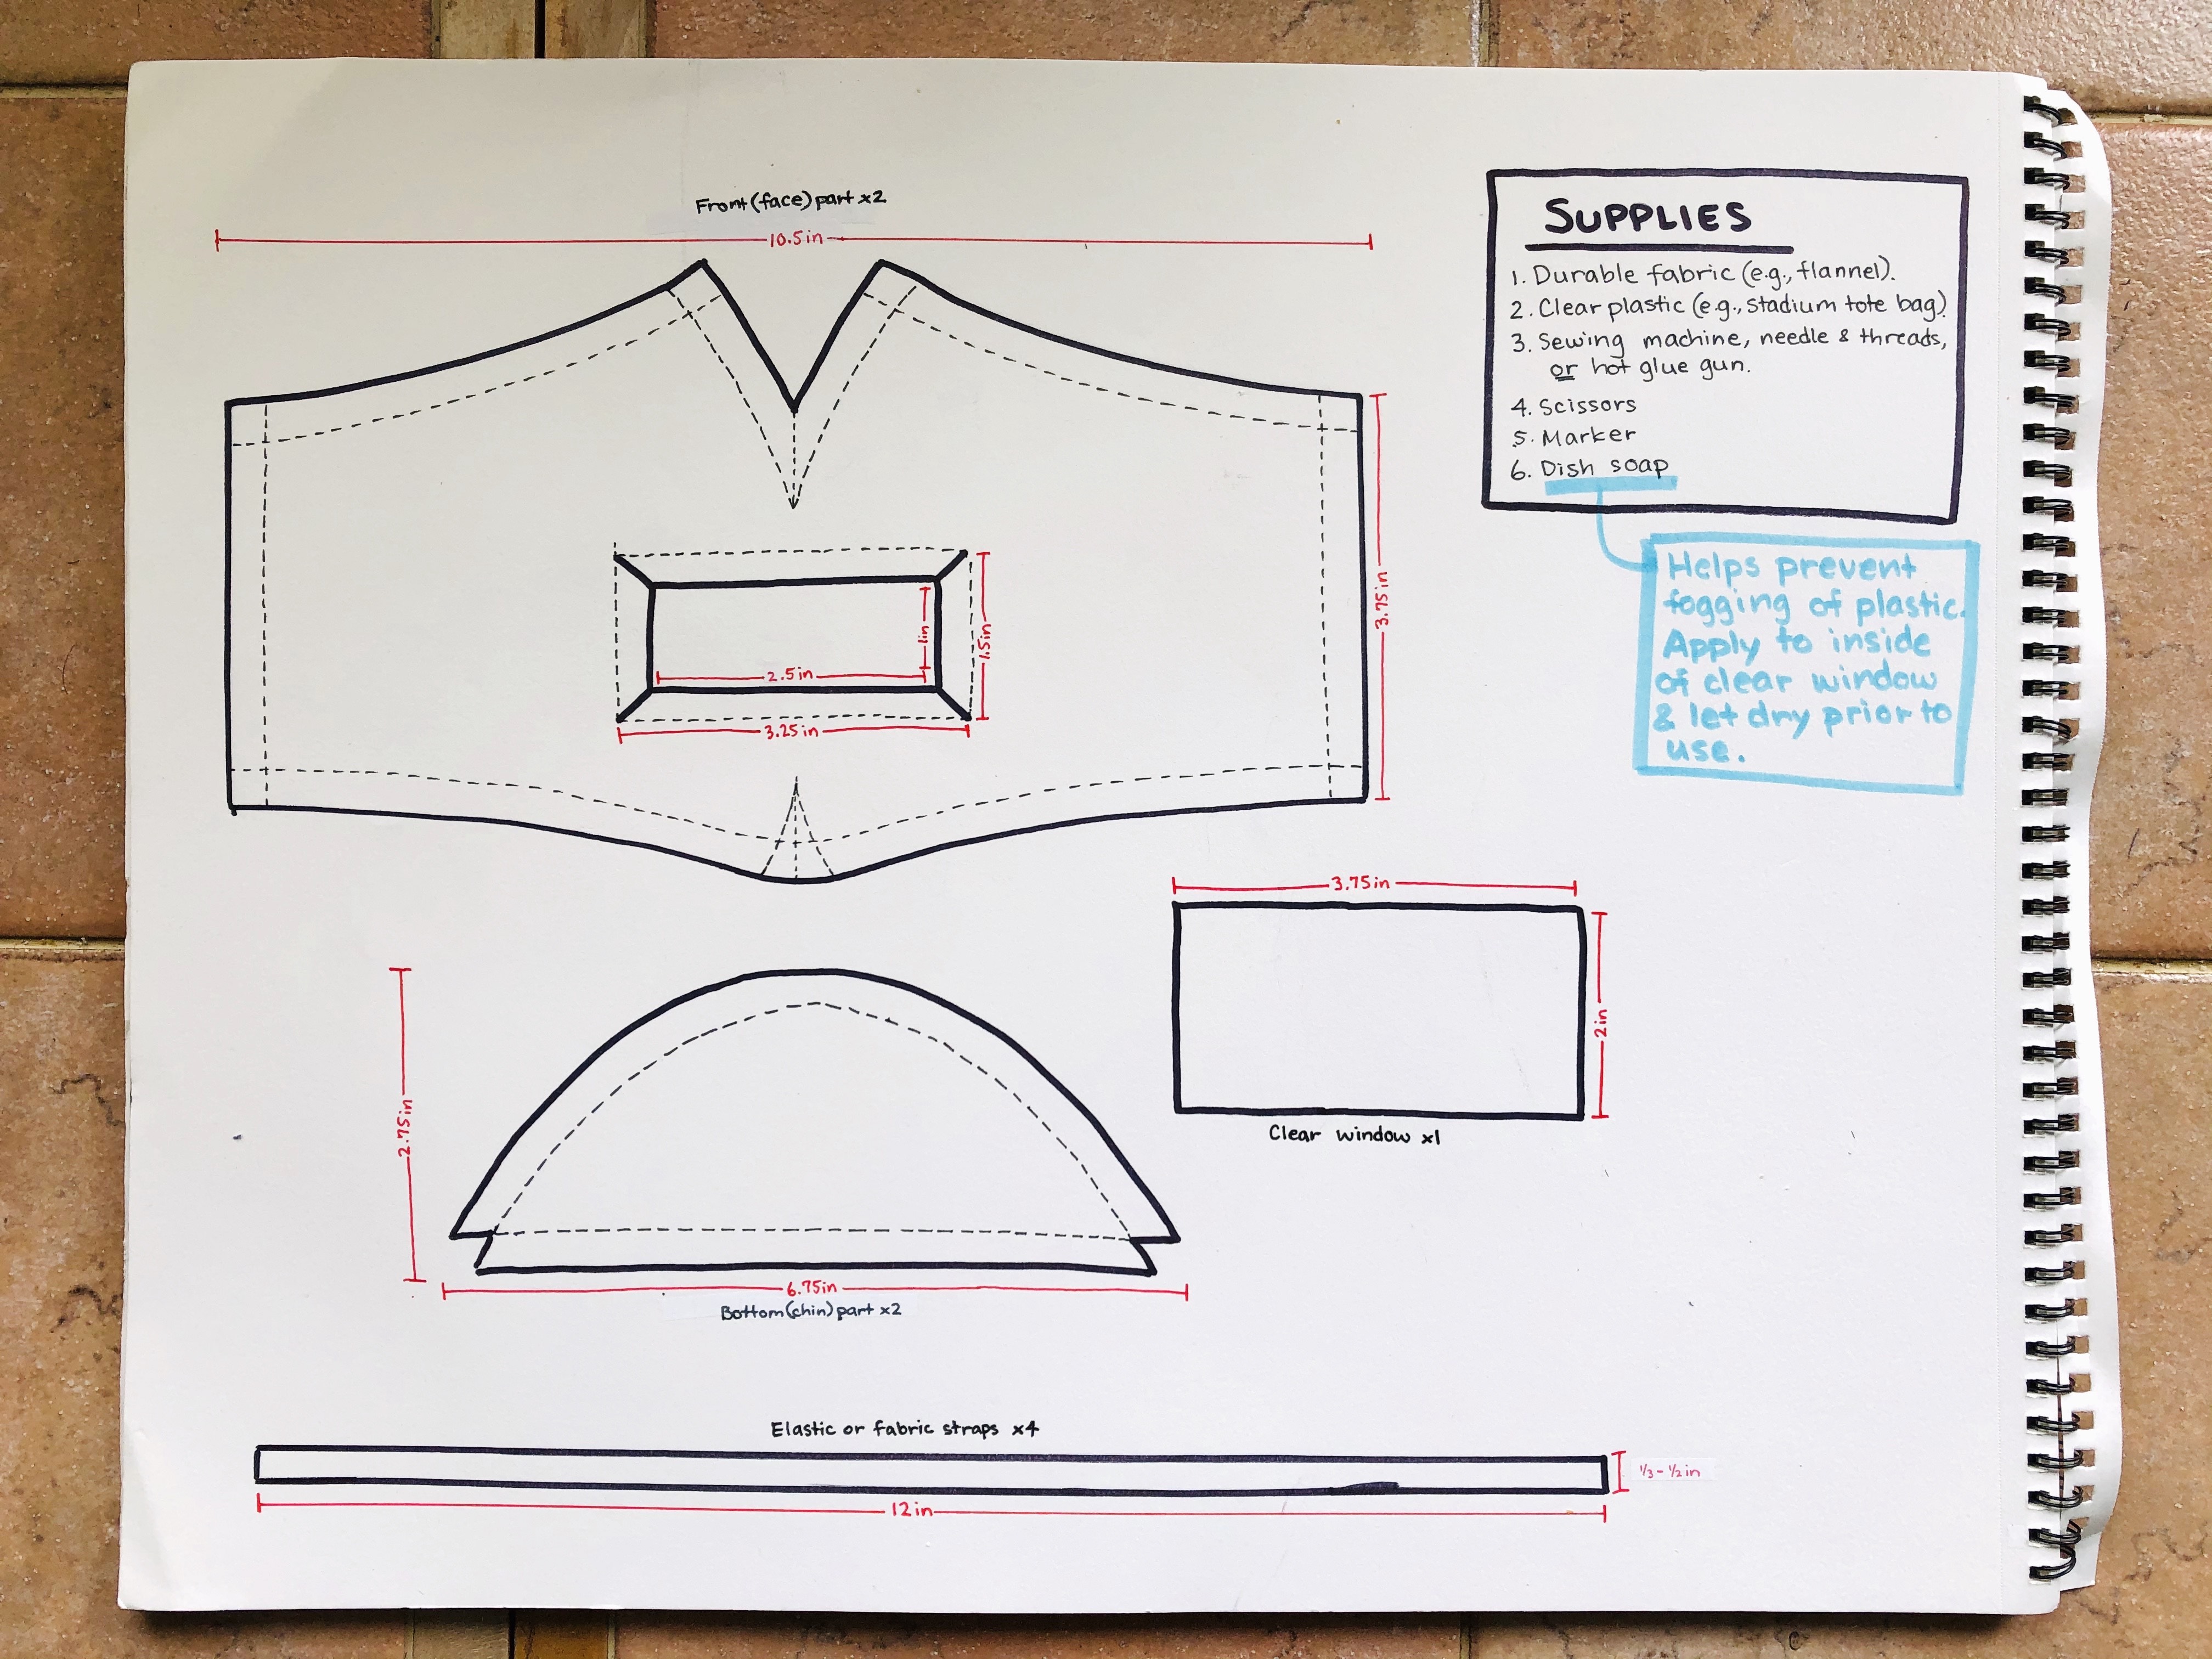 Front (face) part x2
10.5in
3.75in
1in
2.5in
1.5in
3.25in
SUPPLIES
1. Durable fabric (e.g., flannel).
2. Clear plastic (e.g., stadium tote bag).
3. Sewing machine, needle & threads,
or hot glue gun.
4. Scissors
5. Marker
6. Dish soap
Helps prevent
fogging of plastic.
Apply to inside
of clear window
& let dry prior to
use.
3.75in
2in
Clear window x1
2.75in
6.75in
Bottom (chin) part x2
Elastic or fabric straps x4
1/3 - 1/2 in
12in